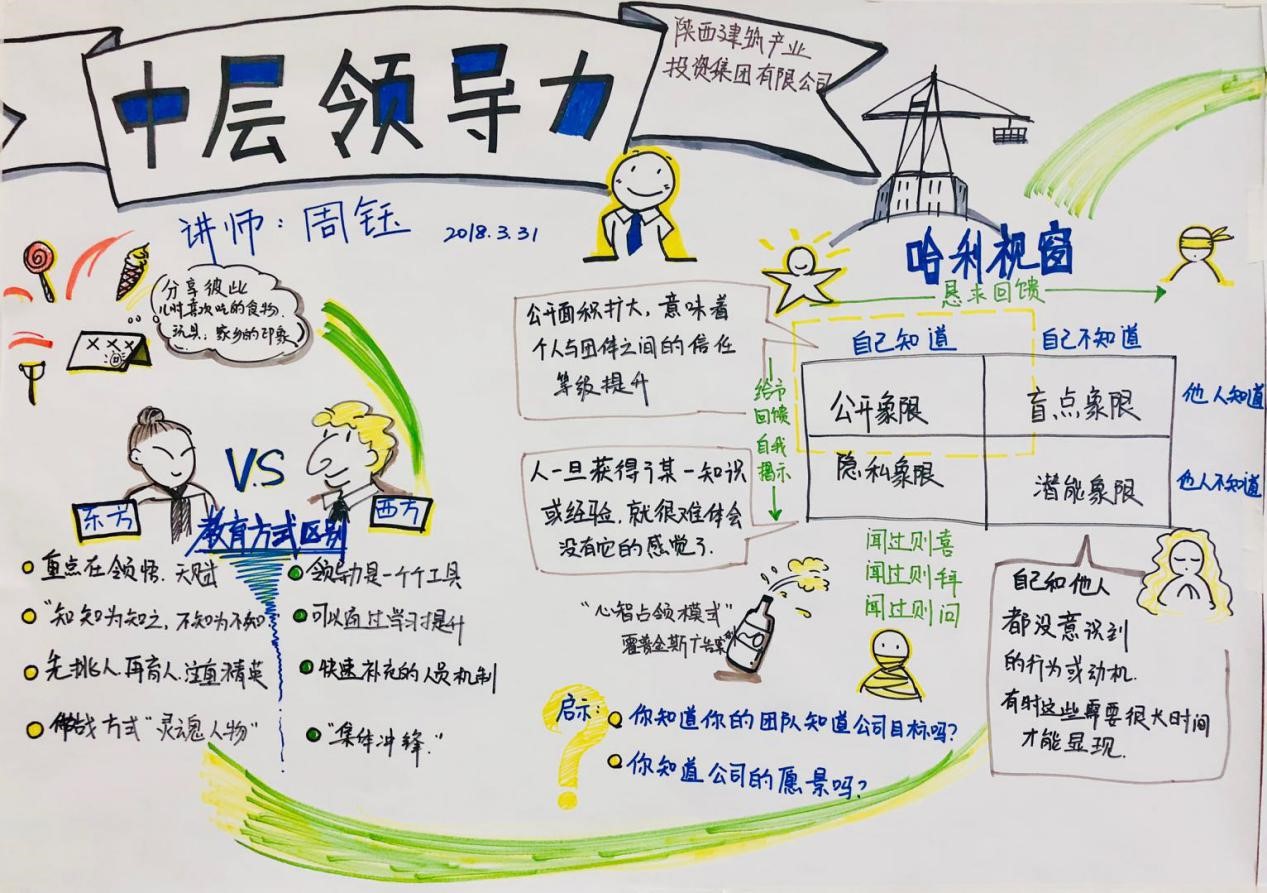 中层领导力
陕西建筑产业
投资集团有限公司
讲师：周钰
2018.3.31
分享彼此
儿时喜欢吃的食物.
玩具；家乡的印象
VS
东方
西方
教育方式区别
重点在领悟.天赋
"知知为知之，不知为不知
先挑人.再育人.注重精英
作战方式"灵魂人物"
领导力是一个个工具
可以通过学习提升
快速补充的人员机制
"集体冲锋."
哈利视窗
恳求回馈
公开面积扩大，意味着
个人与团体之间的信任
等级提升
自己知道
自己不知道
给予
回馈
自我
揭示
公开象限
盲点象限
他人知道
隐私象限
潜能象限
他人不知道
人一旦获得了某一知识
或经验，就很难体会
没有它的感觉了.
闻过则喜
闻过则拜
闻过则问
"心智占领模式"
自己和他人
都没意识到
的行为或动机.
有时这些需要很长时间
才能显现.
启示:
你知道你的团队知道公司目标吗?
你知道公司的愿景吗?